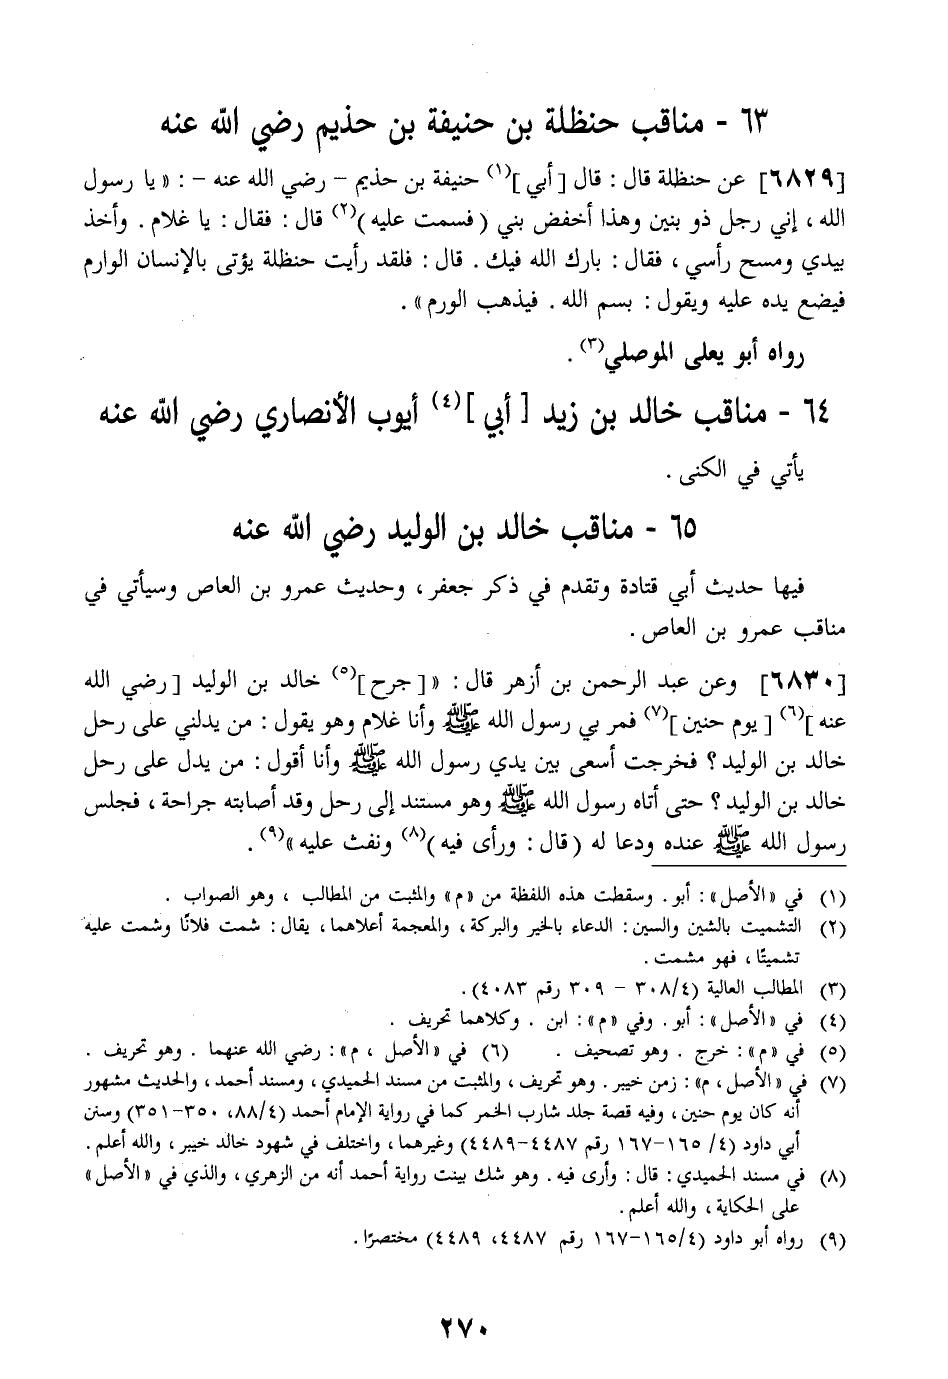 ٦٣ - مناقب حنظلة بن حنيفة بن حذيم رضي الله عنه
[٦٨٢٩] عن حنظلة قال : قال [ أبي ](١) حنيفة بن حذيم – رضي الله عنه – : « يا رسول
الله ، إني رجل ذو بنين وهذا أخفض بني ( فسمت عليه )(٢) قال : فقال : يا غلام . وأخذ
بيدي ومسح رأسي ، فقال : بارك الله فيك . قال : فلقد رأيت حنظلة يؤتى بالإنسان الوارم
فيضع يده عليه ويقول : بسم الله . فيذهب الورم » .
رواه أبو يعلى الموصلي(٣) .
٦٤ - مناقب خالد بن زيد [ أبي ](٤) أيوب الأنصاري رضي الله عنه
يأتي في الكنى .
٦٥ - مناقب خالد بن الوليد رضي الله عنه
فيها حديث أبي قتادة وتقدم في ذكر جعفر ، وحديث عمرو بن العاص وسيأتي في
مناقب عمرو بن العاص .
[٦٨٣٠] وعن عبد الرحمن بن أزهر قال : « [ جرح ](٥) خالد بن الوليد [ رضي الله
عنه ](٦) [ يوم حنين ](٧) فمر بي رسول الله ﷺ وأنا غلام وهو يقول : من يدلني على رحل
خالد بن الوليد ؟ فخرجت أسعى بين يدي رسول الله ﷺ وأنا أقول : من يدل على رحل
خالد بن الوليد ؟ حتى أتاه رسول الله ﷺ وهو مستند إلى رحل وقد أصابته جراحة ، فجلس
رسول الله ﷺ عنده ودعا له ( قال : ورأى فيه )(٨) ونفث عليه »(٩) .
(١) في «الأصل» : أبو . وسقطت هذه اللفظة من «م» والمثبت من المطالب ، وهو الصواب .
(٢) التشميت بالشين والسين : الدعاء بالخير والبركة ، والمعجمة أعلاهما ، يقال : شمت فلانًا وشمت عليه
تشميتًا ، فهو مشمت .
(٣) المطالب العالية (٣٠٨/٤ – ٣٠٩ رقم ٤٠٨٣) .
(٤) في «الأصل» : أبو . وفي «م» : ابن . وكلاهما تحريف .
(٥) في «م» : خرج . وهو تصحيف . (٦) في «الأصل ، م» : رضي الله عنهما . وهو تحريف .
(٧) في «الأصل ، م» : زمن خيبر . وهو تحريف ، والمثبت من مسند الحميدي ، ومسند أحمد ، والحديث مشهور
أنه كان يوم حنين ، وفيه قصة جلد شارب الخمر كما في رواية الإمام أحمد (٨٨/٤، ٣٥٠-٣٥١) وسنن
أبي داود (٤/ ١٦٥-١٦٧ رقم ٤٤٨٧-٤٤٨٩) وغيرهما ، واختلف في شهود خالد خيبر ، والله أعلم .
(٨) في مسند الحميدي : قال : وأرى فيه . وهو شك بينت رواية أحمد أنه من الزهري ، والذي في «الأصل»
على الحكاية ، والله أعلم .
(٩) رواه أبو داود (١٦٥/٤-١٦٧ رقم ٤٤٨٧، ٤٤٨٩) مختصرًا .
٢٧٠